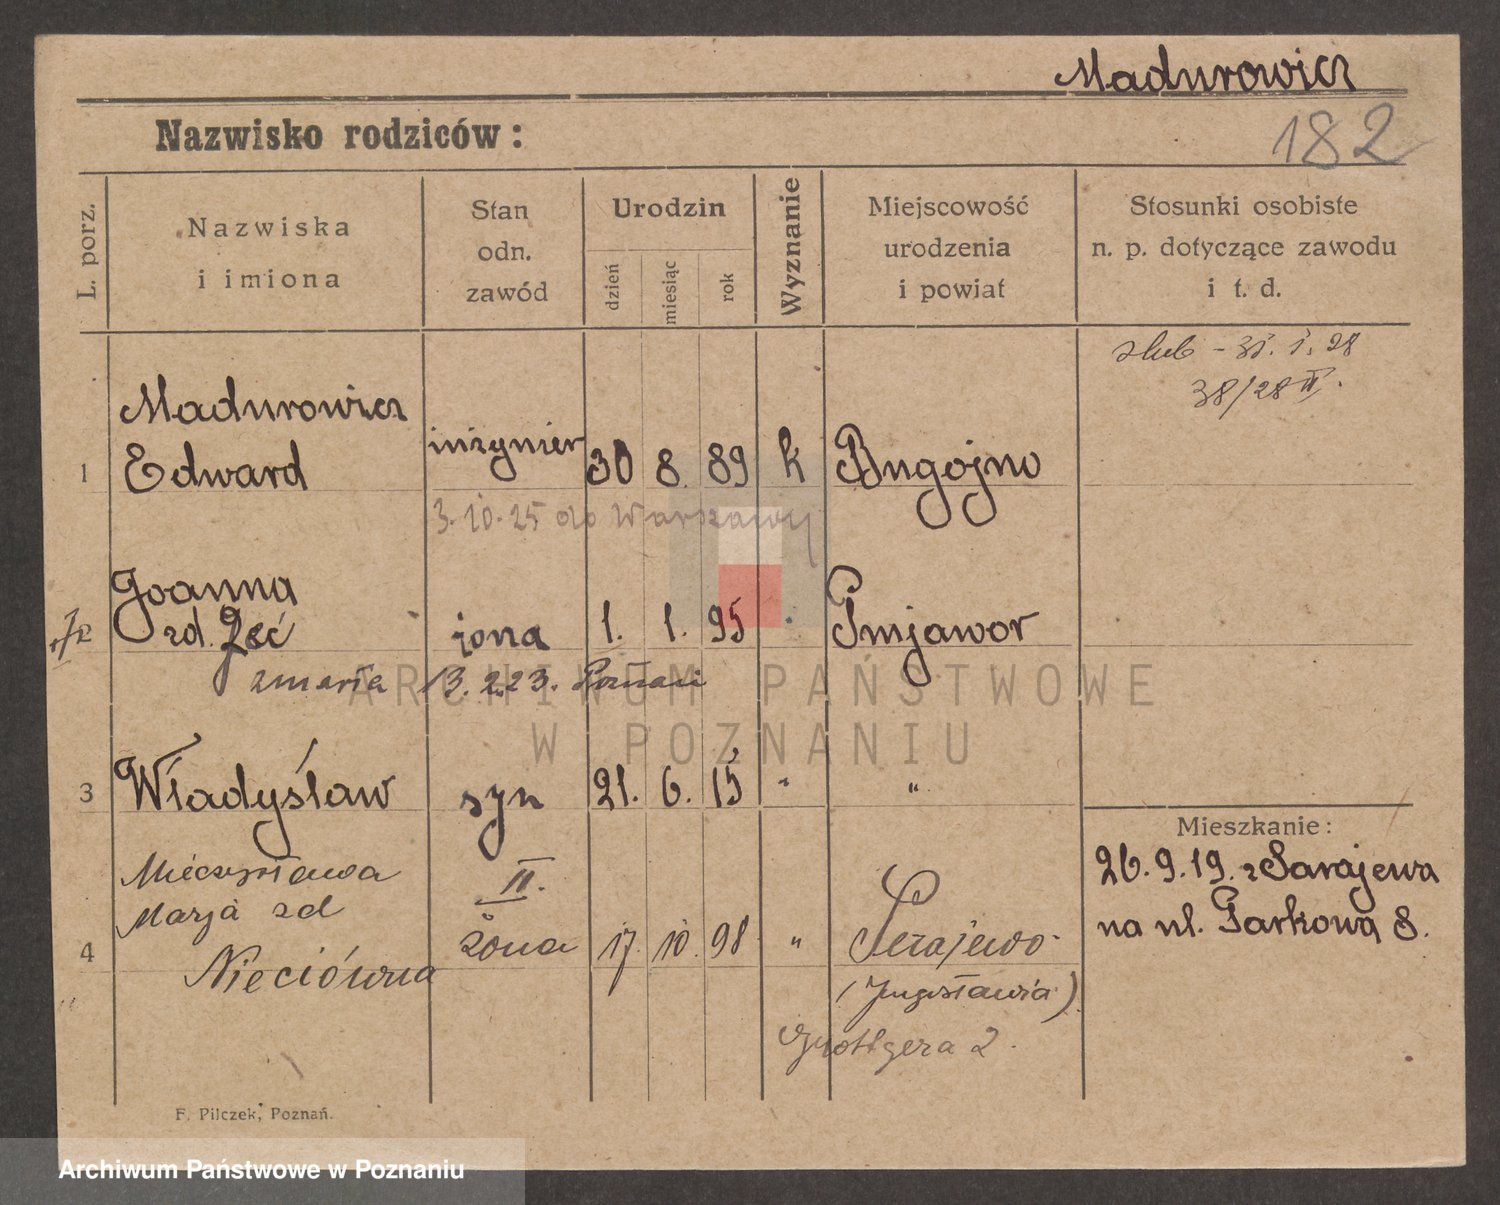 Madurowicz
182
Nazwisko rodziców:
L. porz.
Nazwiska
i imiona
Stan
odn.
zawód
Urodzin
dzień
miesiąc
rok
Wyznanie
Miejscowość
urodzenia
i powiat
Stosunki osobiste
n. p. dotyczące zawodu
i t. d.
ślub - 31. I. 28
38/28 II.
Madurowicz
1 Edward inżynier 30 8. 89 k Bugojno
3.10.25 do Warszawy
Joanna
zd. żona 1. 1. 95 "
zmarła 13.2.23. Poznań
ARCHIWUM PAŃSTWOWE
W POZNANIU
3 Władysław syn 21. 6. 15 " "
Mieszkanie:
26.9.19. z Sarajewa
na ul. Parkową 8.
Mieczysława
Marja zd
II.
4 Nieciówna żona 17. 10. 98 " Serajewo
(Jugosławia)
Grottgera 2.
F. Pilczek, Poznań.
Archiwum Państwowe w Poznaniu